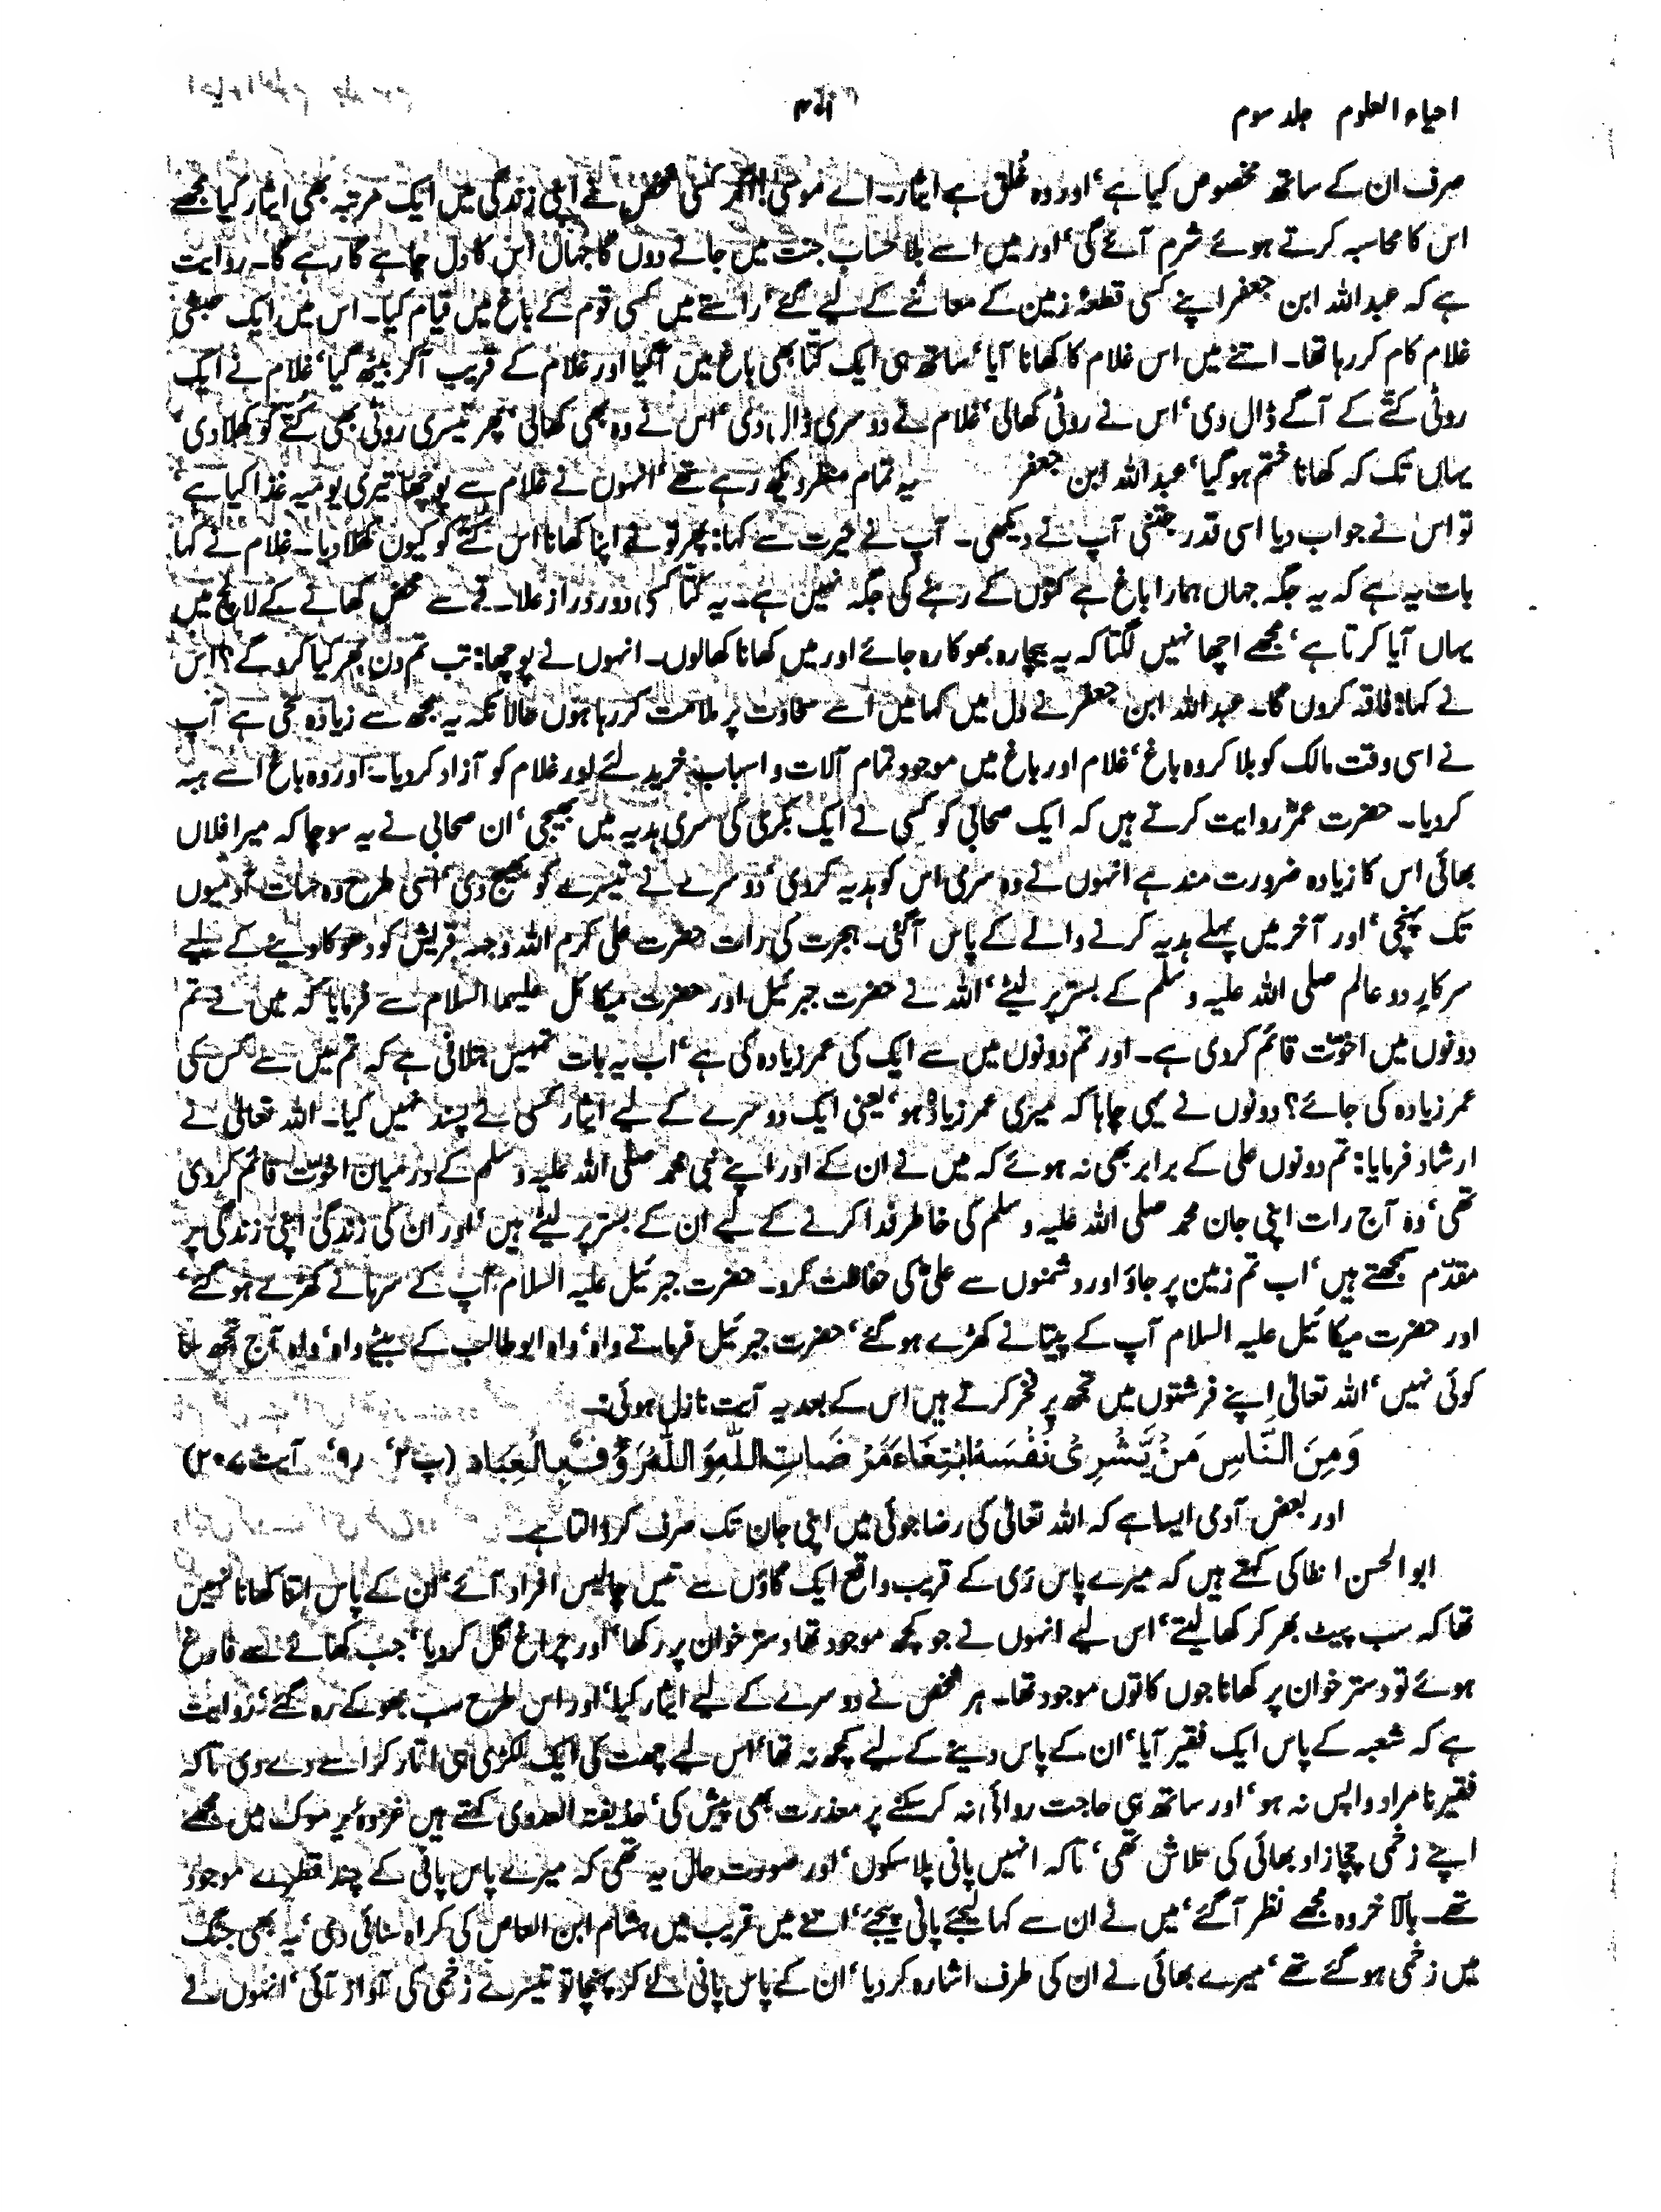 احیاء العلوم جلد سوم
۴۰۱
صرف ان کے ساتھ مخصوص کیا ہے‘ اور وہ خُلق ہے ایثار۔ اے موسیٰ! اگر کسی شخص نے اپنی زندگی میں ایک مرتبہ بھی ایثار کیا مجھے
اس کا محاسبہ کرتے ہوئے شرم آئے گی‘ اور میں اسے بلا حساب جنت میں جانے دوں گا جہاں اس کا دل چاہے گا رہے گا۔ روایت
ہے کہ عبداللہ ابن جعفر اپنے کسی قطعۂ زمین کے معائنے کے لیے گئے‘ راستے میں کسی قوم کے باغ میں قیام کیا۔ اس میں ایک حبشی
غلام کام کر رہا تھا۔ اتنے میں اس غلام کا کھانا آیا‘ ساتھ ہی ایک کتّا بھی باغ میں آگیا اور غلام کے قریب آکر بیٹھ گیا‘ غلام نے ایک
روٹی کتّے کے آگے ڈال دی‘ اس نے روٹی کھالی‘ غلام نے دوسری ڈال دی‘ اس نے وہ بھی کھالی‘ پھر تیسری روٹی بھی کُتّے کو کھلا دی‘
یہاں تک کہ کھانا ختم ہوگیا‘ عبداللہ ابن جعفر یہ تمام منظر دیکھ رہے تھے‘ انہوں نے غلام سے پوچھا تیری یومیہ غذا کیا ہے‘
تو اس نے جواب دیا اسی قدر جتنی آپ نے دیکھی۔ آپ نے حیرت سے کہا: پھر تو نے اپنا کھانا اس کتّے کو کیوں کھلا دیا۔ غلام نے کہا
بات یہ ہے کہ یہ جگہ جہاں ہمارا باغ ہے کتّوں کے رہنے کی جگہ نہیں ہے۔ یہ کتّا کسی دور دراز علاقے سے محض کھانے کے لالچ میں
یہاں آیا کرتا ہے‘ مجھے اچھا نہیں لگتا کہ یہ بیچارہ بھوکا رہ جائے اور میں کھانا کھالوں۔ انہوں نے پوچھا: تب تم دن بھر کیا کروگے؟ اس
نے کہا: فاقہ کروں گا۔ عبداللہ ابن جعفر نے دل میں کہا میں اسے سخاوت پر ملامت کر رہا ہوں حالانکہ یہ مجھ سے زیادہ سخی ہے آپ
نے اسی وقت مالک کو بلا کر وہ باغ‘ غلام اور باغ میں موجود تمام آلات و اسباب خرید لئے اور غلام کو آزاد کردیا۔ اور وہ باغ اسے ہبہ
کردیا۔ حضرت عمرؓ روایت کرتے ہیں کہ ایک صحابی کو کسی نے ایک بکری کی سری ہدیہ میں بھیجی‘ ان صحابی نے یہ سوچا کہ میرا فلاں
بھائی اس کا زیادہ ضرورت مند ہے انہوں نے وہ سری اس کو ہدیہ کردی‘ دوسرے نے تیسرے کو بھیج دی‘ اسی طرح وہ سات آدمیوں
تک پہنچی‘ اور آخر میں پہلے ہدیہ کرنے والے کے پاس آگئی۔ ہجرت کی رات حضرت علی کرم اللہ وجہہ قریش کو دھوکا دینے کے لیے
سرکارِ دو عالم صلی اللہ علیہ وسلم کے بستر پر لیٹے‘ اللہ نے حضرت جبرئیل اور حضرت میکائل علیہما السلام سے فرمایا کہ میں نے تم
دونوں میں اخوّت قائم کردی ہے۔ اور تم دونوں میں سے ایک کی عمر زیادہ کی ہے‘ اب یہ بات تمہیں بتلانی ہے کہ تم میں سے کس کی
عمر زیادہ کی جائے؟ دونوں نے یہی چاہا کہ میری عمر زیادہ ہو‘ یعنی ایک دوسرے کے لیے ایثار کسی نے پسند نہیں کیا۔ اللہ تعالیٰ نے
ارشاد فرمایا: تم دونوں علی کے برابر بھی نہ ہوئے کہ میں نے ان کے اور اپنے نبی محمد صلی اللہ علیہ وسلم کے درمیان اخوّت قائم کردی
تھی‘ وہ آج رات اپنی جان محمد صلی اللہ علیہ وسلم کی خاطر فدا کرنے کے لیے ان کے بستر پر لیٹے ہیں‘ اور ان کی زندگی اپنی زندگی پر
مقدّم سمجھتے ہیں‘ اب تم زمین پر جاؤ اور دشمنوں سے علیؓ کی حفاظت کرو۔ حضرت جبرئیل علیہ السلام آپ کے سرہانے کھڑے ہوگئے‘
اور حضرت میکائیل علیہ السلام آپ کے پیتانے کھڑے ہوگئے‘ حضرت جبرئیل فرماتے واہ‘ واہ ابوطالب کے بیٹے واہ‘ واہ آج تجھ سا
کوئی نہیں‘ اللہ تعالیٰ اپنے فرشتوں میں تجھ پر فخر کرتے ہیں اس کے بعد یہ آیت نازل ہوئی:۔
وَمِنَ النَّاسِ مَنْ يَّشْرِىْ نَفْسَهُ ابْتِغَاءَ مَرْضَاتِ اللّٰهِ وَاللّٰهُ رَؤُفٌ بِالْعِبَادِ (پ۲‘ ر۹‘ آیت ۲۰۷)
اور بعض آدمی ایسا ہے کہ اللہ تعالیٰ کی رضا جوئی میں اپنی جان تک صرف کر ڈالتا ہے۔
ابو الحسن انطاکی کہتے ہیں کہ میرے پاس رَی کے قریب واقع ایک گاؤں سے تیس چالیس افراد آئے‘ ان کے پاس اتنا کھانا نہیں
تھا کہ سب پیٹ بھر کر کھا لیتے‘ اس لیے انہوں نے جو کچھ موجود تھا دسترخوان پر رکھا‘ اور چراغ گل کردیا‘ جب کھانے سے فارغ
ہوئے تو دسترخوان پر کھانا جوں کا توں موجود تھا۔ ہر شخص نے دوسرے کے لیے ایثار کیا‘ اور اس طرح سب بھوکے رہ گئے‘ روایت
ہے کہ شعبہ کے پاس ایک فقیر آیا‘ ان کے پاس دینے کے لیے کچھ نہ تھا‘ اس لیے چھت کی ایک لکڑی ہی اتار کر اسے دے دی تاکہ
فقیر نامراد واپس نہ ہو‘ اور ساتھ ہی حاجت روائی نہ کرسکنے پر معذرت بھی پیش کی‘ حذیفۃ العدوی کہتے ہیں غزوۂ یرموک میں مجھے
اپنے زخمی چچازاد بھائی کی تلاش تھی‘ تاکہ انہیں پانی پلا سکوں‘ اور صورت حال یہ تھی کہ میرے پاس پانی کے چند قطرے موجود
تھے۔ بالآخر وہ مجھے نظر آگئے‘ میں نے ان سے کہا لیجئے پانی پیجئے‘ اتنے میں قریب میں ہشام ابن العاص کی کراہ سنائی دی‘ یہ بھی جنگ
میں زخمی ہوگئے تھے‘ میرے بھائی نے ان کی طرف اشارہ کردیا‘ ان کے پاس پانی لے کر پہنچا تو تیسرے زخمی کی آواز آئی‘ انہوں نے